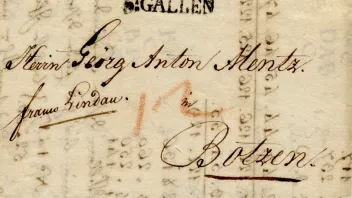 S:GALLEN
Herrn Geörg Anton Mentz.
franco Lindau.
12
in
Botzen.